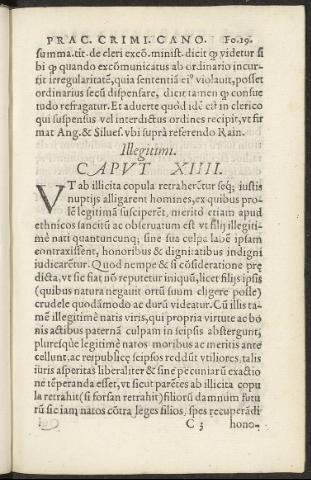 PRAC. CRIMI. CANO. Fo.19.
summa. tit. de cleri excō. minist. dicit ꝙ videtur si
bi ꝙ quando excōmunicatus ab ordinario incur-
rit irregularitatē, quia sententiā ei⁹ violauit, posset
ordinarius secū dispensare, dicit tamen ꝙ consue
tudo refragatur. Et aduerte quòd idē est in clerico
qui suspensus vel interdictus ordines recipit, vt fir
mat Ang. & Silues. vbi suprà referendo Rain.
Illegitimi.
CAPVT XIIII.
VT ab illicita copula retraherētur seq; iustis
nuptijs alligarent homines, ex quibus pro-
lē legitimā susciperēt, meritò etiam apud
ethnicos sancitū ac obseruatum est vt filij illegiti-
mè nati quantuncunq; sine sua culpa labē ipsam
contraxissent, honoribus & dignitatibus indigni
iudicarētur. Quod nempe & si cōsideratione prę
dicta, vt sic fiat nō reputetur iniquū, licet filijs ipsis
(quibus natura negauit ortū suum eligere posse)
crudele quodāmodo ac durū videatur. Cū illis ta-
mē illegitimè natis viris, qui propria virtute ac bo
nis actibus paternā culpam in seipsis abstergunt,
pluresq́ue legitimè natos moribus ac meritis ante
cellunt, ac reipublicę seipsos reddūt vtiliores, talis
iuris asperitas liberaliter & sine pecuniarū exactio
ne tēperanda esset, vt sicut parētes ab illicita copu
la retrahit (si forsan retrahit) filiorū damnum futu
rū sic iam natos cōtra leges filios, spes recuperādi
C 3 hono-